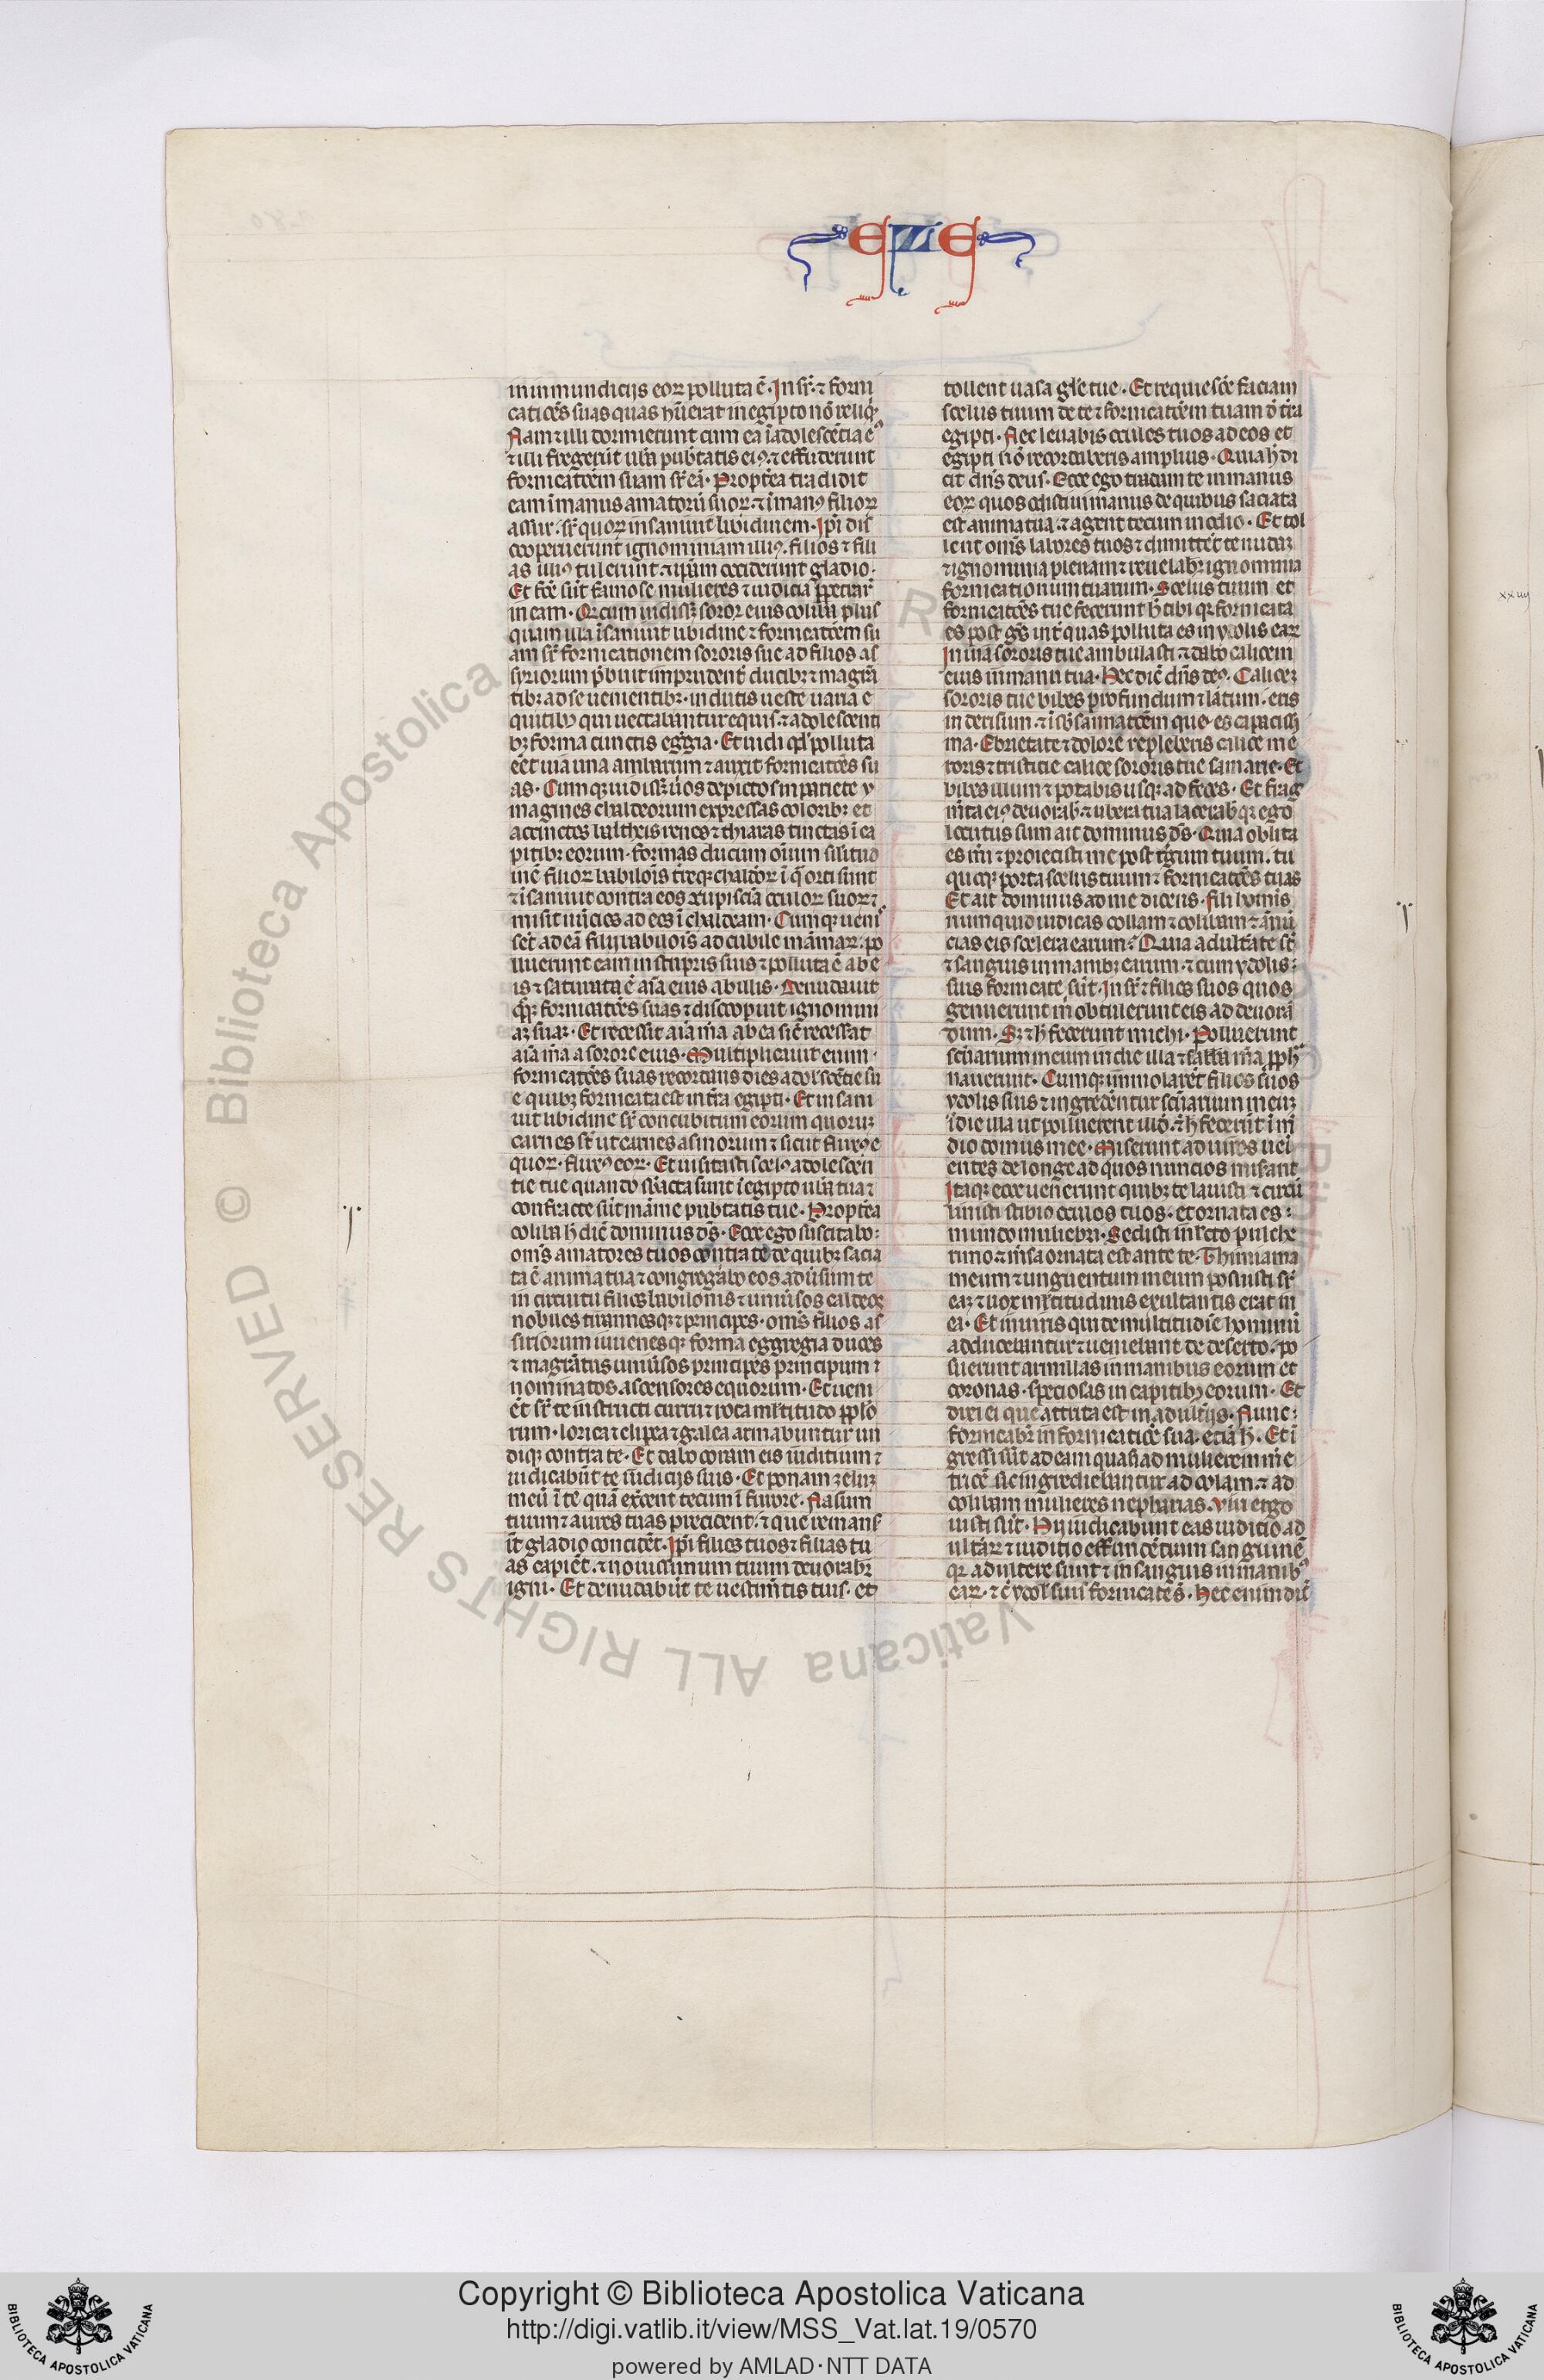 EZE
in inmundicijs eoꝝ polluta ẽ. In sr̃. ⁊ forni
cacões suas quas hũerat in egipto nõ reliq̃.
Nam ⁊ illi dormierunt cum ea ĩ adolescẽtia eꝰ
⁊ illi fregerũt ub̾a pub̾tatis eiꝰ. ⁊ effuderunt
fornicacõem suam sr̃ eã. Propt̾ea tradidit
eam ĩ manus amatorũ suoꝝ. ⁊ ĩ manꝰ filioꝝ
assur. sr̃ quoꝝ insaniuit libidinem. Ip̃i dis
cooperuerunt ignominiam illiꝰ. filios ⁊ fili
as illiꝰ tulerunt. ⁊ ip̃am occiderunt gladio.
Et fc̃e sũt famose mulieres ⁊ iudicia ꝑpetraĩ
in eam. Qꝫ cum uidissꝫ soror eius ooliba plus
quam illa ĩsaniuit libidine ⁊ fornicacõem su
am sr̃ fornicationem sororis sue ad filios as
syriorum p̃buit impudent̾ ducibꝫ ⁊ magr̃a
tibꝫ ad se uenientibꝫ. indutis ueste uaria e
quitibꝫ qui uectabantur equis. ⁊ adolescenti
bꝫ forma cunctis eg̾gia. Et uidi qd̾ polluta
eẽt uia una ambarum ⁊ auxit fornicacões su
as. Cumqꝫ uidissꝫ uiros depictos in pariete y
magines chaldeorum expressas coloribꝫ et
accinctos baltheis renes ⁊ thiaras tinctas ĩ ca
pitibꝫ eorum. formas ducum oĩum silitud
inẽ filioꝝ babilois t̾reqꝫ chaldeoꝝ ĩ q̃ orti sunt
⁊ ĩsaniuit contra eos ꝯcupiscĩa oculoꝝ suoꝝ ⁊
misit nũcios ad eos ĩ chaldeam. Cumqꝫ ueniꝰ
set̾ ad eã filij babilois ad cubile mãmaꝝ. po
lluerunt eam in stupris suis ⁊ polluta ẽ ab e
is ⁊ saturata ẽ aĩa eius ab illis. Denudauit
q̃qꝫ fornicacões suas ⁊ discoop̃uit ignomini
aꝫ suaꝫ. Et recessit aĩa m̃a ab ea sic̃ recesserat
aĩa m̃a a sorore eius. Multiplicauit enim.
fornicacões suas recordans dies adolescẽtie su
e quibꝫ fornicata est in t̾ra egipti. Et insani
uit libidine sr̃ concubitum eorum quoruꝫ
carnes sũt ut carnes asinorum ⁊ sicut fluxꝰ e
quoꝝ. fluxꝰ eoꝝ. Et uisitasti scelꝰ adolescen
tie tue quando sb̾acta sunt ĩ egipto ub̾a tua ⁊
confracte sũt mãme pub̾tatis tue. Propt̾ea
ooliba h̾ dic̃ dominus dš. Ecce ego suscitabo.
omẽs amatores tuos contra te de quibꝫ sacia
ta ẽ anima tua ⁊ congregabo eos adũsum te
in circuitu filios babilonis ⁊ uniũsos caldeos
nobiles tirannosqꝫ ⁊ principes. omẽs filios as
siriorum iuuenesqꝫ forma eggregia duces
⁊ magr̃atus uniũsos principes principum ⁊
nominatos ascensores equorum. Et ueni
ẽt sr̃ te instructi curru ⁊ rota mltitudo ppl̾o
rum. lorica ⁊ clipea ⁊ galea armabuntur un
diqꝫ contra te. Et dabo coram eis iuditium ⁊
iudicabũt te iũdicijs suis. Et ponam zeluꝫ
meũ ĩ te quã exc̾ent tecum ĩ furore. Nasum
tuum ⁊ aures tuas precident. ⁊ que remans̾
ĩt gladio concidẽt. Ip̃i filios tuos ⁊ filias tu
as capiẽt. ⁊ nouissimum tuum deuorabit̾
igni. Et denudabũt te uestimẽtis tuis. et
tollent uasa gl̃e tue. Et requiescẽ faciam
scelus tuum de te ⁊ fornicacõem tuam d̾ t̾ra
egipti. Nec leuabis oculos tuos ad eos et
egipti nõ recordaberis amplius. Quia h̾ di
cit dñs deus. Ecce ego tradam te in manus
eoꝝ quos odisti in manus de quibus saciata
est anima tua. ⁊ agent tecum in odio. Et tol
lent omẽs labores tuos ⁊ dimittẽt te nudaꝫ
⁊ ignominia plenam ⁊ reuelabit̾ ignominia
fornicationum tuarum. Scelus tuum et
fornicacões tue fecerunt h̾ tibi qꝫ fornicata
es post gẽs int̾ quas polluta es in ydolis eaꝝ
In uia sororis tue ambulasti ⁊ dabo calicem
eius in manu tua. Hec dic̃ dñs deꝰ. Calicem
sororis tue bibes profundum ⁊ latum. eris
in derisum. ⁊ ĩ sb̾sannacõem que es capacissi
ma. Ebrietate ⁊ dolore repleberis calice me
roris ⁊ tristicie calice sororis tue samarie. Et
bibes illum ⁊ potabis usqꝫ ad feces. Et frag
m̃ta eiꝰ deuorab̾. ⁊ ubera tua lacerab̾ qꝫ ego
locutus sum ait dominus dš. Quia oblita
es m̃i ⁊ proiecisti me post t̾gum tuum. tu
quoqꝫ porta scelus tuum ⁊ fornicacões tuas
Et ait dominus ad me dicens. fili hominis
numquid iudicas oollam ⁊ oolibam ⁊ ãnũ
cias eis scelera earum? Quia adult̾ate sũt
⁊ sanguis in manibꝫ earum. ⁊ cum ydolis.
suis fornicate sũt. In sr̃ ⁊ filios suos quos
genuerunt m̃ obtulerunt eis ad deuorã
dum. Sꝫ ⁊ h̾ fecerunt michi. Polluerunt
scũarium meum in die illa ⁊ sabb̾a m̃a ꝓph
nauerunt. Cumqꝫ immolarẽt filios suos
ydolis suis ⁊ ingrederẽtur scũarium meuꝫ
ĩ die illa ut polluerent illð. ⁊ h̾ fecerũt ĩ m̃
dio domus mee. Miserunt ad uiros ueni
entes de longe ad quos nuncios miserant
Itaqꝫ ecce uenerunt quibꝫ te lauisti ⁊ circũ
liuisti stibio oculos tuos. et ornata es.
mundo muliebri. Sedisti in lecto pulche
rimo ⁊ m̃sa ornata est ante te. Thimiama
meum ⁊ unguentum meum posuisti sr̃
eaꝫ ⁊ uox mltitudinis exultantis erat in
ea. Et in uiris qui de multitudĩe hominũ
adducebantur ⁊ ueniebant de deserto. po
suerunt armillas in manibus eorum et
coronas speciosas in capitibꝫ eorum. Et
dixi ei que attrita est in adult̾ijs. Nunc.
fornicabit̾ in fornicatiõe sua. eciã h̾. Et ĩ
gressi sũt ad eam quasi ad mulierem me
tricẽ sic ingrediebantur ad oolam. ⁊ ad
oolibam mulieres nepharias. Viri ergo
iusti sũt. Hij iudicabunt eas iuditio ad
ult̾aꝝ ⁊ iuditio effundẽtium sanguinẽ
qꝫ adultere sunt ⁊ in sanguis in manibꝰ
eaꝝ. ⁊ c̃ ydol̾ suis fornicatẽs. Hec enim dic̃
xxiiij
Copyright © Biblioteca Apostolica Vaticana
http://digi.vatlib.it/view/MSS_Vat.lat.19/0570
powered by AMLAD·NTT DATA
BIBLIOTECA APOSTOLICA VATICANA
BIBLIOTECA APOSTOLICA VATICANA
© Biblioteca Apostolica Vaticana ALL RIGHTS RESERVED